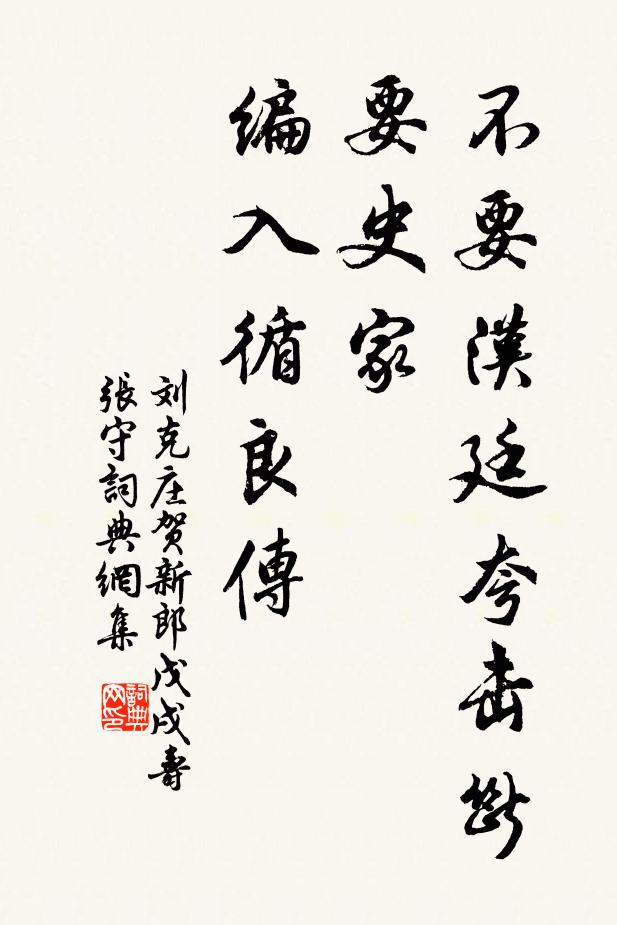 不要漢廷夸击斷
要史家
编入循良傳
刘克庄贺新郎戊戌壽
張守詞典網集
詞典网印